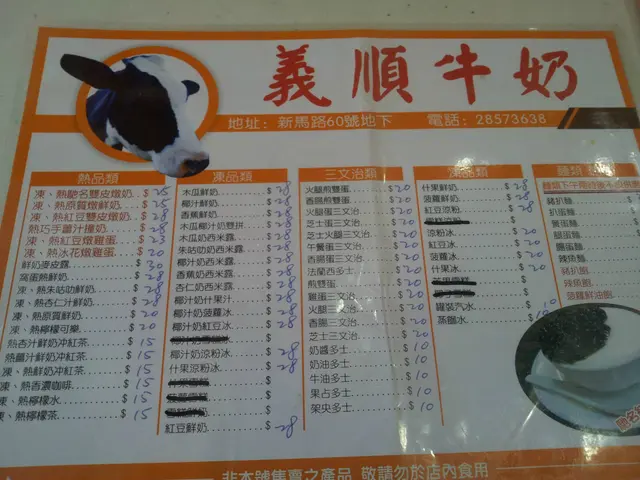 義順牛奶
地址：新馬路60號地下 電話：28573638
熱品類
凍、熱馳名雙皮燉奶 $ 25
凍、熱原質燉鮮奶 $ 25
凍、熱紅豆雙皮燉奶 $ 28
熱巧手薑汁撞奶 $ 28
凍、熱紅豆燉雞蛋 $ 23
凍、熱冰花燉雞蛋 $ 20
鮮奶麥皮露 $ 30
窩蛋熱鮮奶 $ 28
凍、熱朱咕叻鮮奶 $ 28
凍、熱杏仁汁鮮奶 $ 28
凍、熱原質鮮奶 $ 20
凍、熱檸檬可樂 $ 20
熱杏汁鮮奶冲紅茶 $ 15
熱薑汁鮮奶冲紅茶 $ 15
凍、熱鮮奶冲紅茶 $ 15
凍、熱香濃咖啡 $ 15
凍、熱檸檬水 $ 15
凍、熱檸檬茶 $ 15
凍品類
木瓜鮮奶 $ 28
椰汁鮮奶 $ 28
香蕉鮮奶 $ 28
木瓜椰汁奶雙拼 $ 28
木瓜奶西米露 $ 28
朱咕叻奶西米露 $ 28
椰汁奶西米露 $ 28
香蕉奶西米露 $ 28
杏仁奶西米露 $ 28
椰汁奶什果汁 $ 28
椰汁奶菠蘿冰 $ 28
椰汁奶紅豆冰 $ 28
椰汁奶涼粉冰 $ 28
什果涼粉冰 $ 28
紅豆鮮奶 $ 28
三文治類
火腿煎雙蛋 $ 20
香腸煎雙蛋 $ 20
火腿蛋三文治 $ 20
芝士蛋三文治 $ 20
芝士火腿三文治 $ 20
午餐蛋三文治 $ 20
香腸蛋三文治 $ 20
法蘭西多士 $ 20
煎雙蛋 $ 20
雞蛋三文治 $ 20
火腿三文治 $ 20
香腸三文治 $ 20
芝士三文治 $ 20
奶醬多士 $ 10
奶油多士 $ 10
牛油多士 $ 10
果占多士 $ 10
架央多士 $ 10
凍品類
什果鮮奶 $ 28
菠蘿鮮奶 $ 28
紅豆涼粉 $ 28
涼粉冰 $ 20
紅豆冰 $ 20
菠蘿冰 $ 20
什果冰 $ 20
罐裝汽水 $ 10
蒸餾水 $ 10
麵類
豬扒麵
扒蛋麵
餐蛋麵
腿蛋麵
腸蛋麵
辣魚麵
豬扒飽
辣魚飽
菠蘿鮮油飽
非本號售賣之產品 敬請勿於店內食用